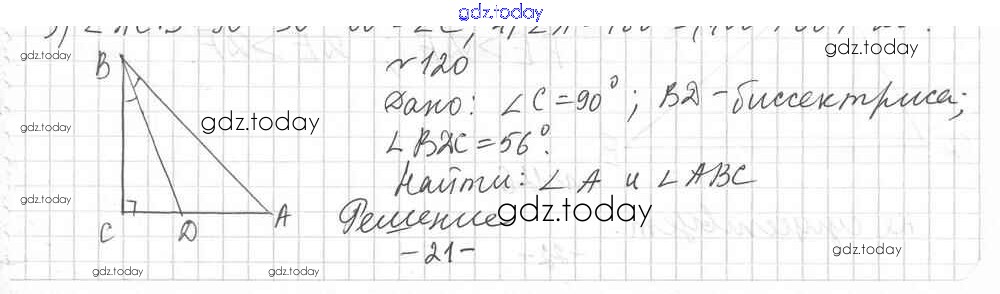 gdz.today
gdz.today
gdz.today
№120
B
Дано: ∠C=90°; BD-биссектриса;
gdz.today
gdz.today
∠BDC=56°.
Найти: ∠A и ∠ABC
gdz.today
C D A
Решение
gdz.today
-21-
gdz.today
gdz.today
gdz.today